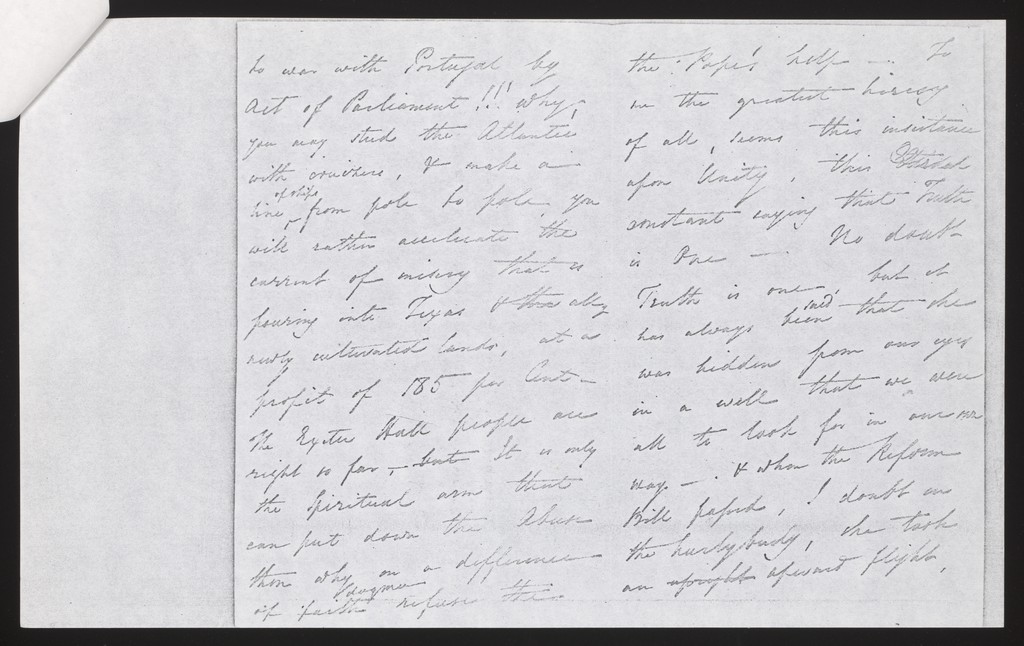 to war with Portugal by
Act of Parliament!!! Why,
you may stud the Atlantic
with cruisers, & make a
of ships
line, from pole to pole, you
will rather accelerate the
current of misery that is
pouring into Texas & the
newly cultivated lands, at a
profit of 185 per Cent—
The Exeter Hall people are
right so far, — but It is only
the Spiritual arm that
can put down the Abuse
then why on a difference
dogma
of faith refuse the
the Pope's help —. To
me the greatest heresy
of all, seems this insistance
upon Unity, this
constant saying that Truth
is One —. No doubt
Truth is one, but it
said
has always been that she
was hidden from our eyes
in a well that we were
all to look for in our own
way —. & when the Reform
Bill passed, I doubt in
the hurlyburly, she took
an upright upward flight,